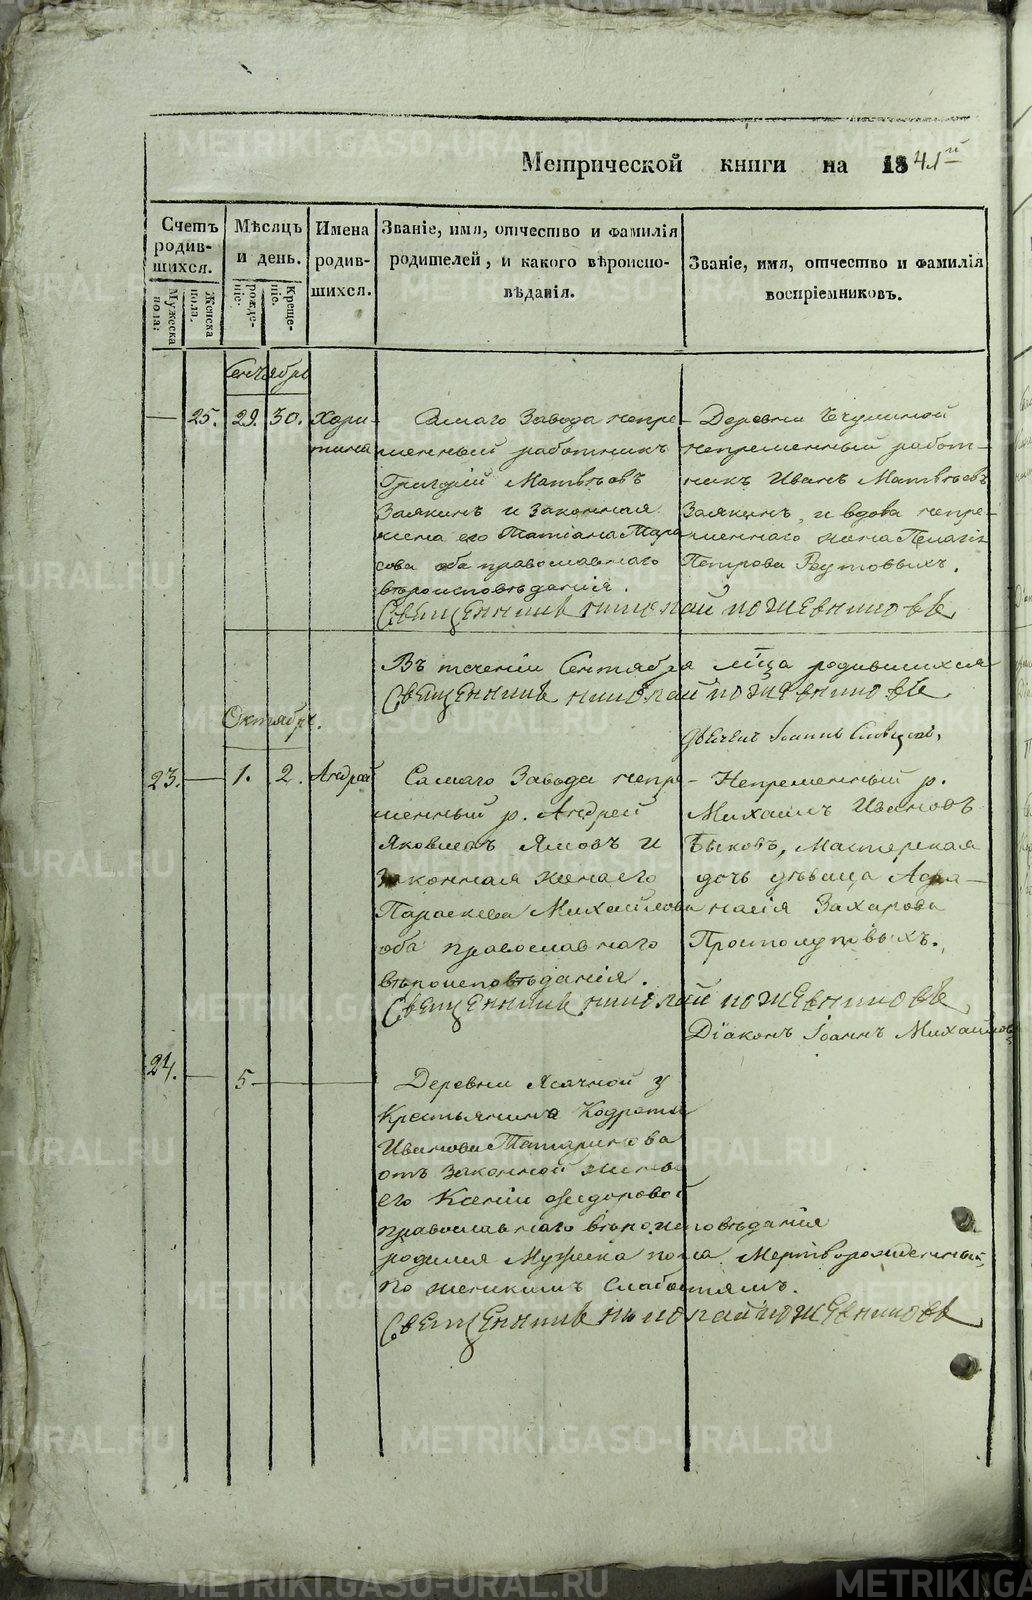 Метрической книги на 1841й
Счетъ родившихся.
Мужеска пола.
Женска пола.
Мѣсяцъ и день.
рожденіе.
Крещеніе.
Имена родившихся.
Званіе, имя, отчество и фамилія
родителей, и какого вѣроиспо-
вѣданія.
Званіе, имя, отчество и фамилія
воспріемниковъ.
Сентябрь
— 25. 29. 30. Хари-
тина
Самаго Завода непре-
менный работникъ
Григорій Матвѣевъ
Заякинъ и законная
жена его Татіана Тара
сова оба православнаго
вѣроисповѣданія.
Деревни
непременный работ-
никъ Иванъ Матвѣевъ
Заякинъ, и вдова непре-
меннаго жена Пелагія
Петрова
Священникъ Николай Пожевниковъ
Въ теченіи Сентября м̃ца родившихся
Священникъ Николай Пожевниковъ
Октябрь.
Іоаннъ
23. — 1. 2. Андрей
Самаго Завода непре-
менный р. Андрей
Яковлевъ Ямовъ и
законная жена его
Параскева Михайлова
оба православнаго
вѣроисповѣданія.
Непременный р.
Михаилъ Ивановъ
Быковъ, Мастерская
дочь дѣвица Афа-
насія Захарова
Простолуповыхъ.
Священникъ Николай Пожевниковъ
Діаконъ Іоаннъ Михайловъ
24. — 5 —
Деревни Ясачной у
Крестьянина Кодрата
Иванова Татаринова
отъ законной жены
его Ксеніи Ѳедоровой
православнаго вѣроисповѣданія
родился Мужеска пола Мертворожденный,
по женскимъ слабостямъ.
Священникъ Николай Пожевниковъ
METRIKI.GASO-URAL.RU